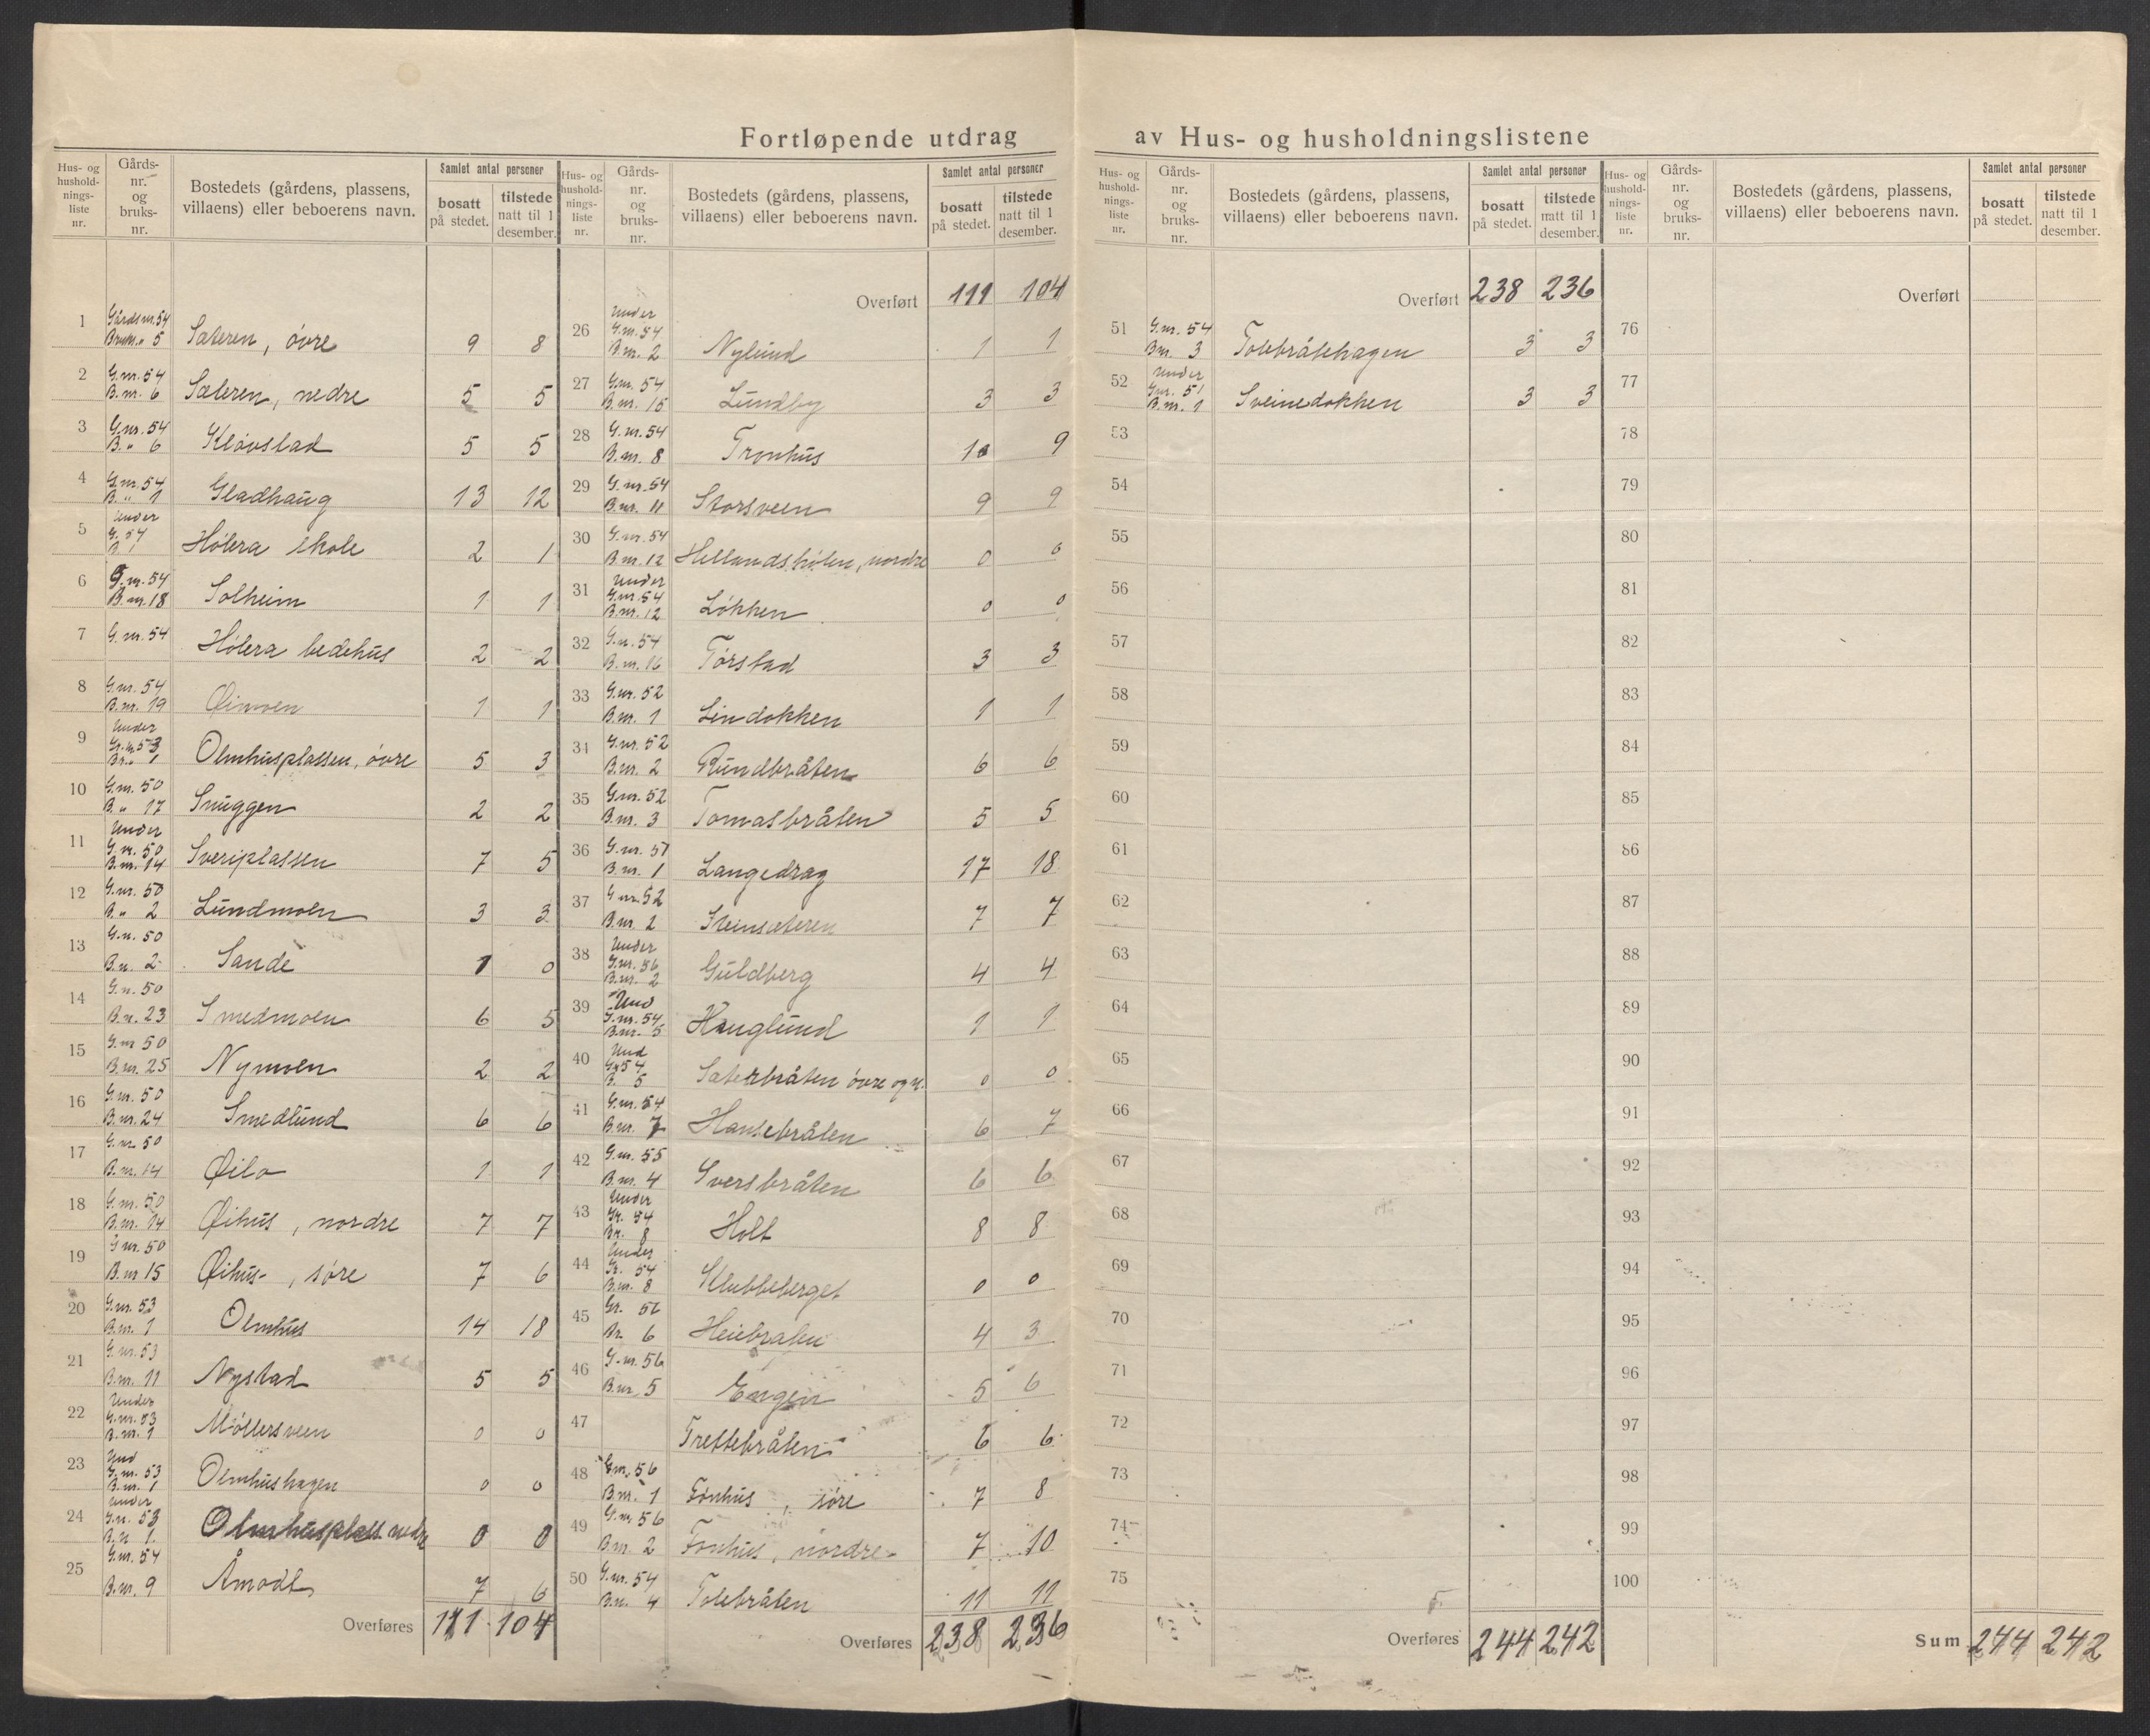 Fortløpende utdrag av Hus- og husholdningslistene
Hus- og hushold-nings-liste nr. | Gårds-nr. og bruks-nr. | Bostedets (gårdens, plassens, villaens) eller beboerens navn. | Samlet antal personer | bosatt på stedet. | tilstede natt til 1 desember.
1 Gårdsnr. 54 Bruks.„ 5 Sæteren, øvre 9 8
2 G.nr. 54 B.nr. 6 Sæteren, nedre 5 5
3 G.nr. 54 B. „ 6 Kløvstad 5 5
4 G.nr. 54 B. „ 1 Gladhaug 13 12
5 Under G. 54 B. 1 Hølera skole 2 1
6 G.nr. 54 B.nr. 18 Solheim 1 1
7 G.nr. 54 Hølera bedehus 2 2
8 G.nr. 54 B.nr. 19 Øimoen 1 1
9 Under Gr.n. 53 Br. „ 1 Olmhusplassen, øvre 5 3
10 G.nr. 50 B. „ 17 Snuggen 2 2
11 Under G.nr. 50 B.nr. 14 Sveriplassen 7 5
12 G.nr. 50 B. „ 2 Lundmoen 3 3
13 G.n. 50 B.n. 2 Sande 1 0
14 G.n. 50 B.n. 23 Smedmoen 6 5
15 G.nr 50 B.nr. 25 Nymoen 2 2
16 G.nr. 50 B.nr. 24 Smedlund 6 6
17 G.nr. 50 B.nr. 14 Øilo 1 1
18 G.nr. 50 B.nr. 14 Øihus, nordre 7 7
19 G.nr. 50 B.nr 15 Øihus-, søre 7 6
20 G.nr. 53 B.nr. 1 Olmhus 14 18
21 G.nr. 53 B.nr. 11 Nystad 5 5
22 Under G.nr. 53 B.nr. 1 Møllersveen 0 0
23 Und G.nr. 53 B.nr. 1 Olmhushagen 0 0
24 Under G.n. 53 B.n 1. Olmhusplass. nedre 0 0
25 G.nr. 54 B.nr. 9 Åmodt 7 6
Overføres 111 104
Hus- og hushold-nings-liste nr. | Gårds-nr. og bruks-nr. | Bostedets (gårdens, plassens, villaens) eller beboerens navn. | Samlet antal personer | bosatt på stedet. | tilstede natt til 1 desember.
Overført 111 104
26 Under G.nr. 54 B.nr. 2 Nylund 1 1
27 G.nr. 54 B.nr. 15 Lundby 3 3
28 G.nr. 54 B.nr. 8 Tronhus 10 9
29 G.nr. 54 B.nr. 11 Storsveen 9 9
30 G.nr. 54 B.nr. 12 Hellandshølen, nordre 0 0
31 Under G.nr. 54 B.nr. 12 Løkken 0 0
32 G.n. 54 B.nr. 16 Tørstad 3 3
33 G.nr. 52 B.nr. 1 Lindokken 1 1
34 G.nr. 52 B.nr. 2 Rundbråten 6 6
35 G.nr. 52 B.nr. 3 Tomasbråten 5 5
36 G.nr. 51 B.nr. 1 Langedrag 17 18
37 G.nr. 52 B.nr. 2 Steinsæteren 7 7
38 Under G.nr. 56 B.nr. 2 Guldberg 4 4
39 Und G.nr. 54 B.nr. 5 Hauglund 1 1
40 Und G. 54 B. 5 Sæterbråten øvre og n. 0 0
41 G.nr. 54 B.nr. 7 Hansebråten 6 7
42 G.nr. 55 B.nr. 4 Sversbråten 6 6
43 Under Gr. 54 Br. 8 Holt 8 8
44 Under Gr. 54 B.nr. 8 Klubbeberget 0 0
45 Gr. 56 Br. 6 Heiebraten 4 3
46 G.nr. 56 B.nr 5 Engen 5 6
47 Trettebråten 6 6
48 G.nr. 56 B.nr. 1 Fønhus, søre 7 8
49 G.nr 56 B.nr. 2 Fønhus, nordre 7 10
50 G.nr. 54 B.n. 4 Tolebråten 11 11
Overføres 238 236
Hus- og hushold-nings-liste nr. | Gårds-nr. og bruks-nr. | Bostedets (gårdens, plassens, villaens) eller beboerens navn. | Samlet antal personer | bosatt på stedet. | tilstede natt til 1 desember.
Overført 238 236
51 G.nr. 54 B.nr. 3 Tolebråtehagen 3 3
52 Under G.nr. 51 B.nr. 1 Sveinedokken 3 3
53
54
55
56
57
58
59
60
61
62
63
64
65
66
67
68
69
70
71
72
73
74
75
Overføres 244 242
Hus- og hushold-nings-liste nr. | Gårds-nr. og bruks-nr. | Bostedets (gårdens, plassens, villaens) eller beboerens navn. | Samlet antal personer | bosatt på stedet. | tilstede natt til 1 desember.
Overført
76
77
78
79
80
81
82
83
84
85
86
87
88
89
90
91
92
93
94
95
96
97
98
99
100
Sum 244 242